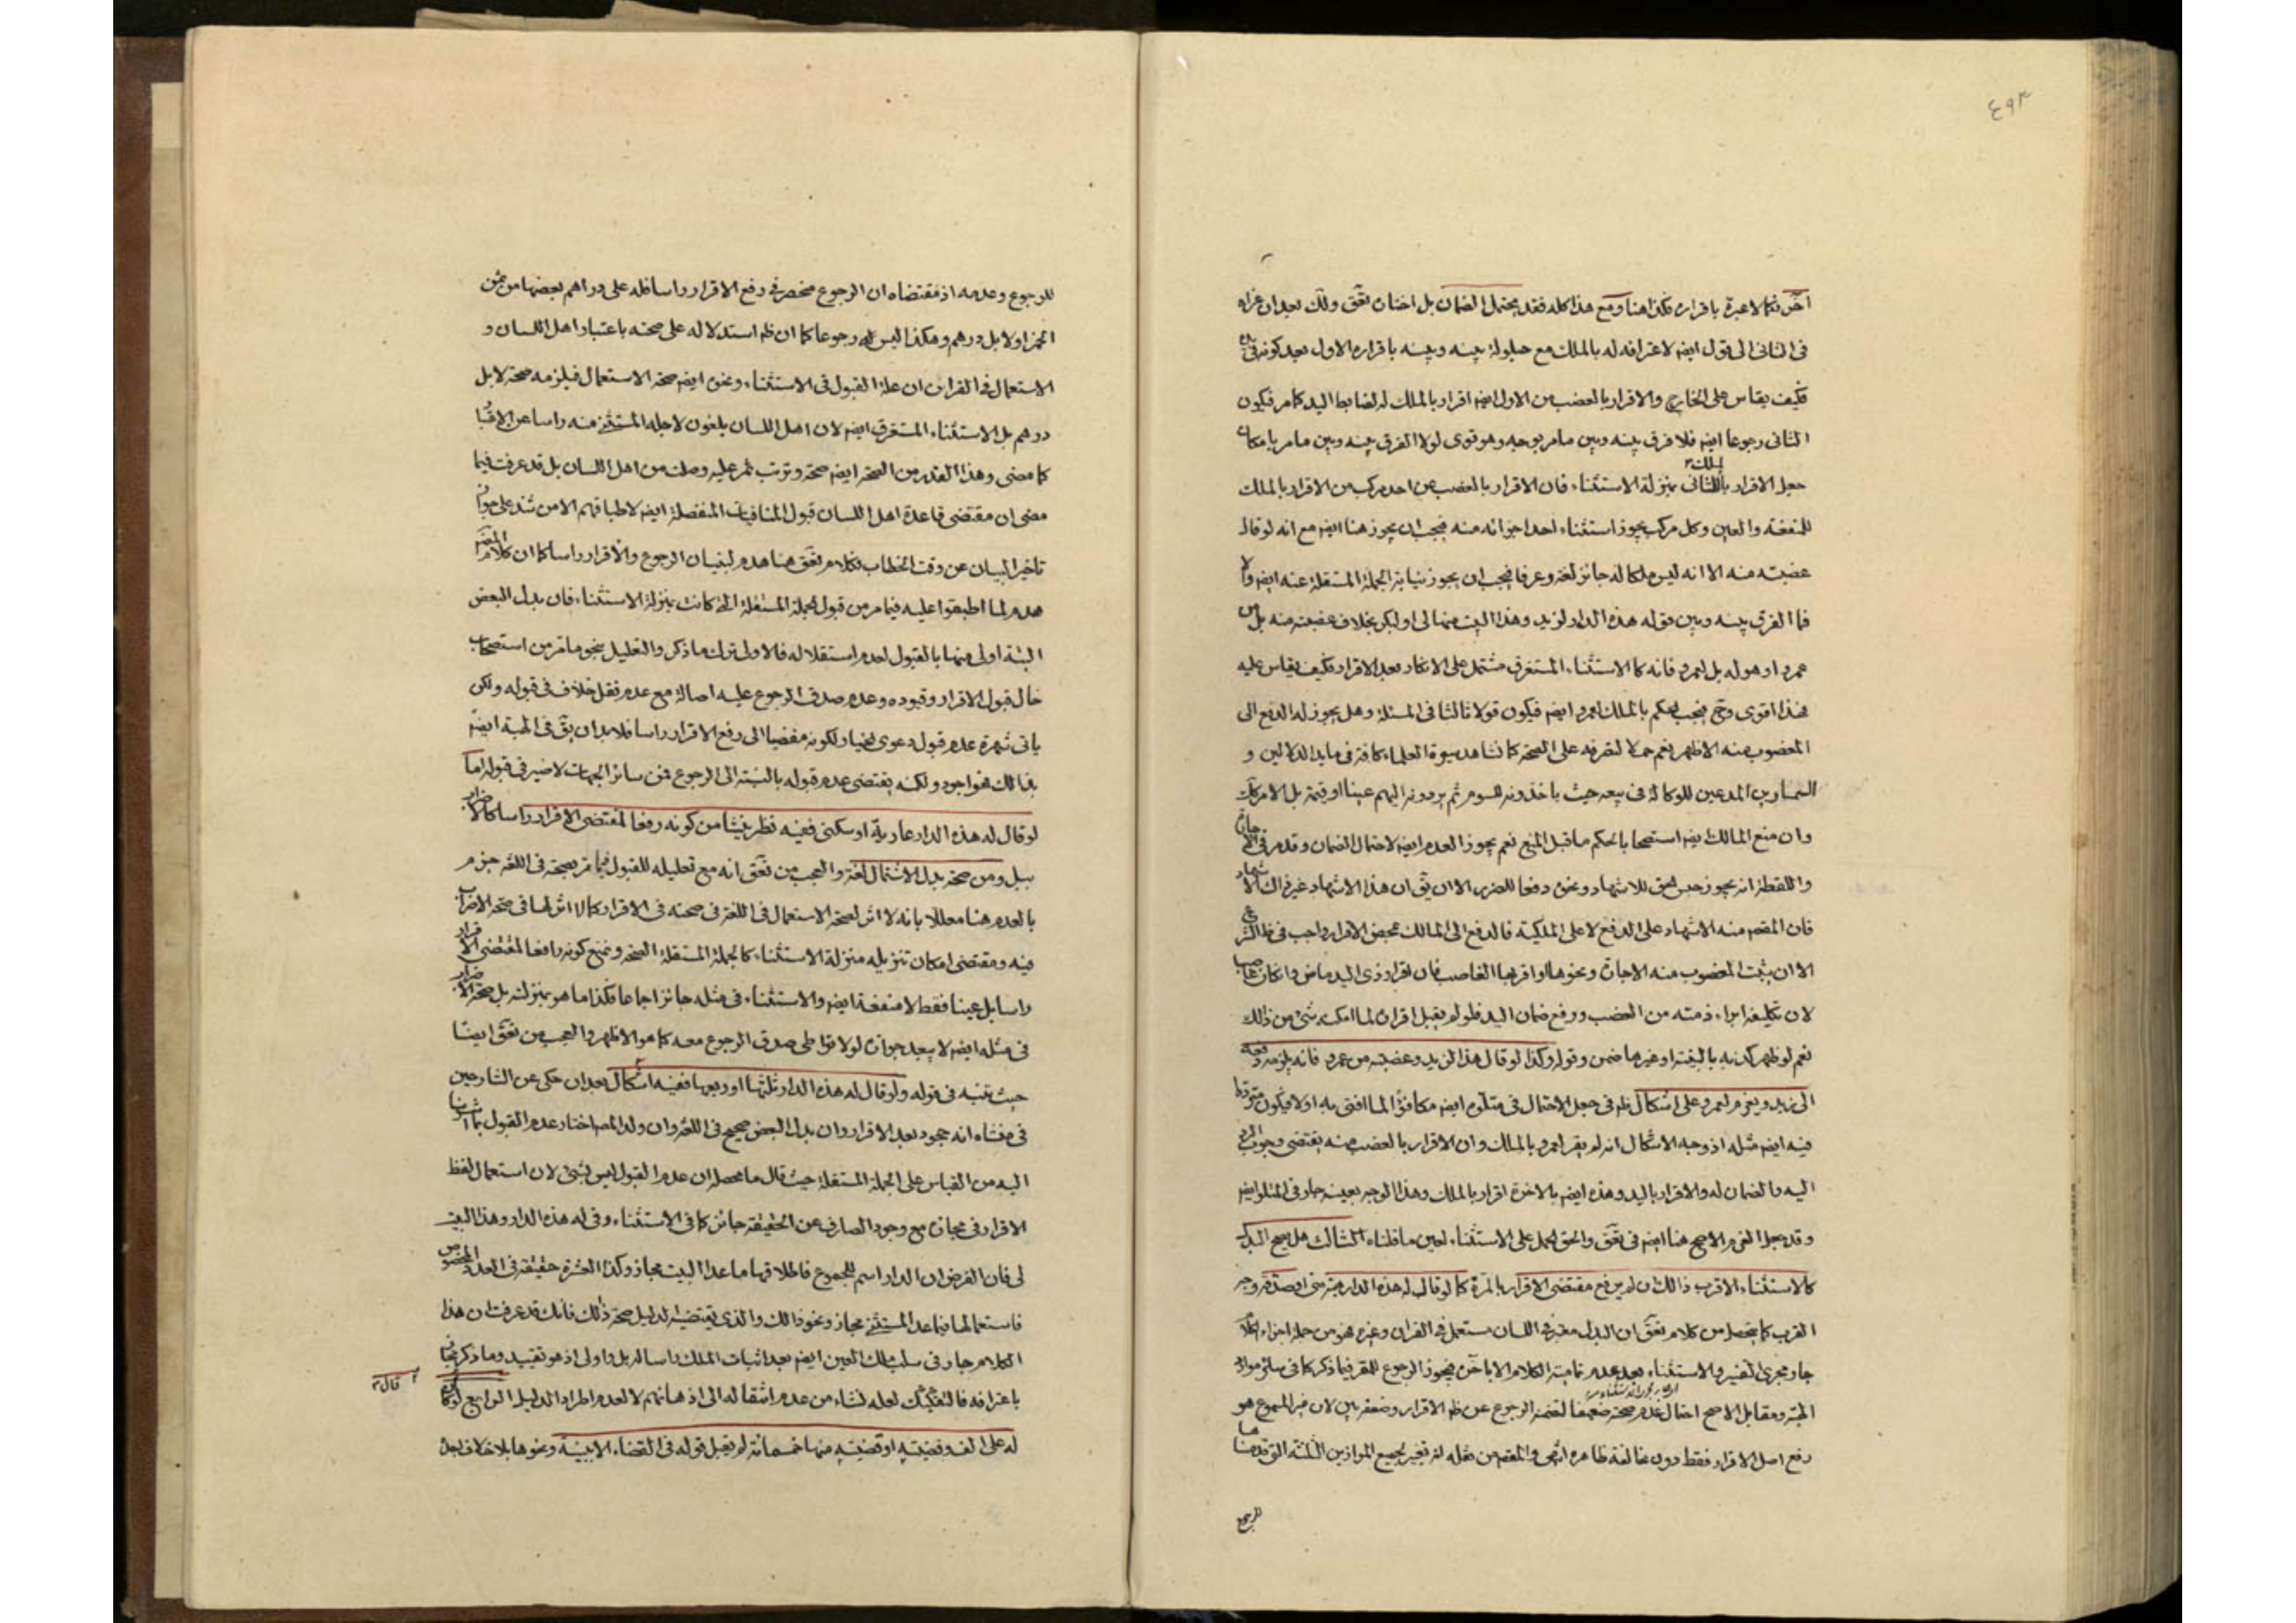 ٤٩٣
آخر فكما لا عبرة باقراره فكذا هنا ومع هذا كله فقد يحتمل الضمان بل اختان تعق ولك بعد ان عزاه
فى الثانى الى قول ايضا لاعترافه له بالملك مع حيلولة بينه وبينه باقراره الاول بعد كونه فى
فكيف يقاس على الخارج والاقرار بالغصب من الاول ايضا اقرار بالملك له لضابط اليد كما مر فيكون
الثانى رجوعا ايضا فلا فرق بينه وبين ما مر بوجه وهو قوى لولا الفرق بينه وبين ما مر بامكان
جعل الاقرار بالملك للثانى بمنزلة الاستثناء فان الاقرار بالغصب من احد مركب من الاقرار بالملك
للمنفعة والعين وكل مركب يجوز استثناء احد اجزائه منه فيجب ان يجوز هنا ايضا مع انه لو قال
غصبته منه الا انه ليس ملكا له جائز لغة وعرفا فيجب ان يجوز نيابة الجملة المستقلة عنه ايضا والا
فما الفرق بينه وبين قوله هذه الدار لزيد وهذا البيت منها لى او لبكر بخلاف غصبته منه بل من
عمرو او هو له بل لعمرو فانه كالاستثناء المستغرق مشتمل على الانكار بعد الاقرار فكيف يقاس عليه
فهذا اقوى وح فيجب الحكم بالملك لعمرو ايضا فيكون قولا ثالثا فى المسئلة وهل يجوز له الدفع الى
المغصوب منه الاظهر نعم حملا لتصرفه على الصحة كما نشاهد سيرة العلماء كافة فى ما يد الدلالين و
السمسارين المدعين للوكالة فى بيعه حيث ياخذونه للسوم ثم يردونه اليهم عينا او قيمة بل الامر كك
وان منع المالك ايضا استصحابا لحكم ما قبل المنع نعم يجوز العدم ايضا لاحتمال الضمان وقد مر فى الاجارة
واللقطة انه يجوز حبس الحق للاشهاد ونحوه دفعا للضرر الا ان يق ان هذا الاشهاد غير ذلك الاشهاد
فان المقصود منه الاشهاد على الدفع لا على الملكية فالدفع الى المالك بمحض الاقرار واجب فى ظ الشرع
الا ان يثبت المغصوب منه الاجارة ونحوها او اقر بها الغاصب فان اقرار ذى اليد ماض وان كان غاصبا
لان تكليفه ابراء ذمته من الغصب ورفع ضمان اليد فلو لم يقبل اقراره لما امكنه شئ من ذلك
نعم لو ظهر كذبه بالبينة او غيرها ضمن وقوله وكذا لو قال هذا لزيد وغصبته من عمرو فانه يلزمه دفعه
الى زيد ويغرم لعمرو على اشكال ظ فى جعل الاحتمال فى متلوه ايضا مكافئا لما افتى به اولا فيكون مترددا
فيه ايضا مثله اذ وجه الاشكال انه لم يقر لعمرو بالملك وان الاقرار بالغصب منه يقتضى وجوب الرد
اليه والضمان له والاقرار باليد وهذه ايضا بالاخرة اقرار بالملك وهذا الوجه بعينه جار فى المتلو ايضا
وقد جعل الغرم الاصح هنا ايضا فى تعق والحق الحمل على الاستثناء لعين ما قلناه الثالث هل يصح البدل
كالاستثناء الاقرب ذالك ان لم يرفع مقتضى الاقرار بالمرة كما لو قال له هذه الدار هبة منى او صدقة وجه
القرب كما يتحصل من كلام تعق ان البدل معتبر فى اللسان مستعمل فى القران وغيره فهو من جملة اجزاء الكلام
جار مجرى التفسير والاستثناء بعد عدم تمامية الكلام الا باخره فيجوز الرجوع للمقر فيما ذكر كما فى سائر موارد
الهبة ومقابل الاصح احتمال عدم صحته ضعيفا لتضمنه الرجوع عن ظ الاقرار وضعفه بين لان غير المسموع هو
رفع اصل الاقرار فقط دون مخالفة ظاهره انتهى والمقصود من نقله انه تغيير لجميع الموازين الثلثة التى قدمناها
للرجوع
للرجوع وعدمه اذ مقتضاه ان الرجوع منحصر فى رفع الاقرار راسا فله على دراهم بعضها من ثمن
الخمر او لا بل درهم وهكذا ليس له رجوعا كما ان ظ استدلاله على صحته باعتبار اهل اللسان و
الاستعمال فى القران ان علة القبول فى الاستثناء ونحوه ايضا صحة الاستعمال فيلزمه صحة لا بل
درهم بل الاستثناء المستغرق ايضا لان اهل اللسان يلغون لاجله المستثنى منه راسا عن الاعتبار
كما مضى وهذا القدر من الصحة ايضا صحة وترتب ثمر عليه وصلت من اهل اللسان بل قد عرفت فيما
مضى ان مقتضى قاعدة اهل اللسان قبول المنافيات المنفصلة ايضا لاطباقهم الا من شذ على جواز
تاخير البيان عن وقت الخطاب فكلام تعق هنا هدم لبنيان الرجوع والاقرار راسا كما ان كلام المصنف
هدم لما اطبقوا عليه فيما مر من قبول الجملة المستقلة التى كانت بمنزلة الاستثناء فان بدل البعض
البتة اولى منها بالقبول لعدم استقلاله فالاولى ترك ما ذكر والتعليل بنحو ما مر من استصحاب
حال قبول الاقرار وقيوده وعدم صدق الرجوع عليه اصالة مع عدم نقل خلاف فى قبوله ولكن
ياتى شهرة عدم قبول دعوى الخيار لكونه مفضيا الى رفع الاقرار راسا فلا بد ان يق فى الهبة ايضا
بذالك فهو اجود ولكنه يقتضى عدم قبوله بالنسبة الى الرجوع فمن سائر الجهات لا ضير فى قبوله اما
لو قال له هذه الدار عارية او سكنى ففيه نظر ينشأ من كونه رفعا لمقتضى الاقرار راسا كالاضراب
ببل ومن صحة بدل الاشتمال لغة والعجب من تعق انه مع تعليله للقبول فيما مر بصحته فى اللغة جزم
بالعدم هنا معللا بانه لا اثر لصحة الاستعمال فى اللغة فى صحته فى الاقرار كما لا اثر لها فى صحة الاضراب
فيه ومقتضى امكان تنزيله منزلة الاستثناء كالجملة المستقلة الصحة ونمنع كونه رافعا لمقتضى الاقرار
راسا بل عينا فقط لا منفعة ايضا والاستثناء فى مثله جائز اجماعا فكذا ما هو بمنزلته بل صحة الاضراب
فى مثله ايضا لا يبعد جوازه لولا تواطى صدق الرجوع معه كما هو الاظهر والعجب من تعق ايضا
حيث تنبه فى قوله ولو قال له هذه الدار ثلثها او ربعها ففيه اشكال بعد ان حكى عن الشارحين
فى منشاه انه جحود بعد الاقرار وان بدل البعض صحيح فى اللغة وان ولد المص اختار عدم القبول بما اشرنا
اليه من القياس على الجملة المستقلة حيث قال ما محصله ان عدم القبول ليس بشئ لان استعمال لفظ
الاقرار فى مجازه مع وجود الصارف عن الحقيقة جائز كما فى الاستثناء وفى له هذه الدار وهذا البيت
لى فان الفرض ان الدار اسم للمجموع فاطلاقها ما عدا البيت مجاز وكذا العشرة حقيقة فى العدد المخصوص
فاستعمالها فيما عدا المستثنى مجاز ونحو ذالك والذى يقتضيه الدليل صحة ذلك فانك قد عرفت ان هذا
الكلام جار فى سلب تلك العين ايضا بعد اثبات الملك راسا له بل واولى اذ هو تقييد وما ذكر
باعترافه فالتفكيك لعله نشاء من عدم انتقاله الى اذهانهم لا لعدم اطراد الدليل الرابع لو
قال
له على الف وقضيته او قضيته منها خمسمائة لم يقبل قوله فى القضاء الا ببينة ونحوها بلا خلاف